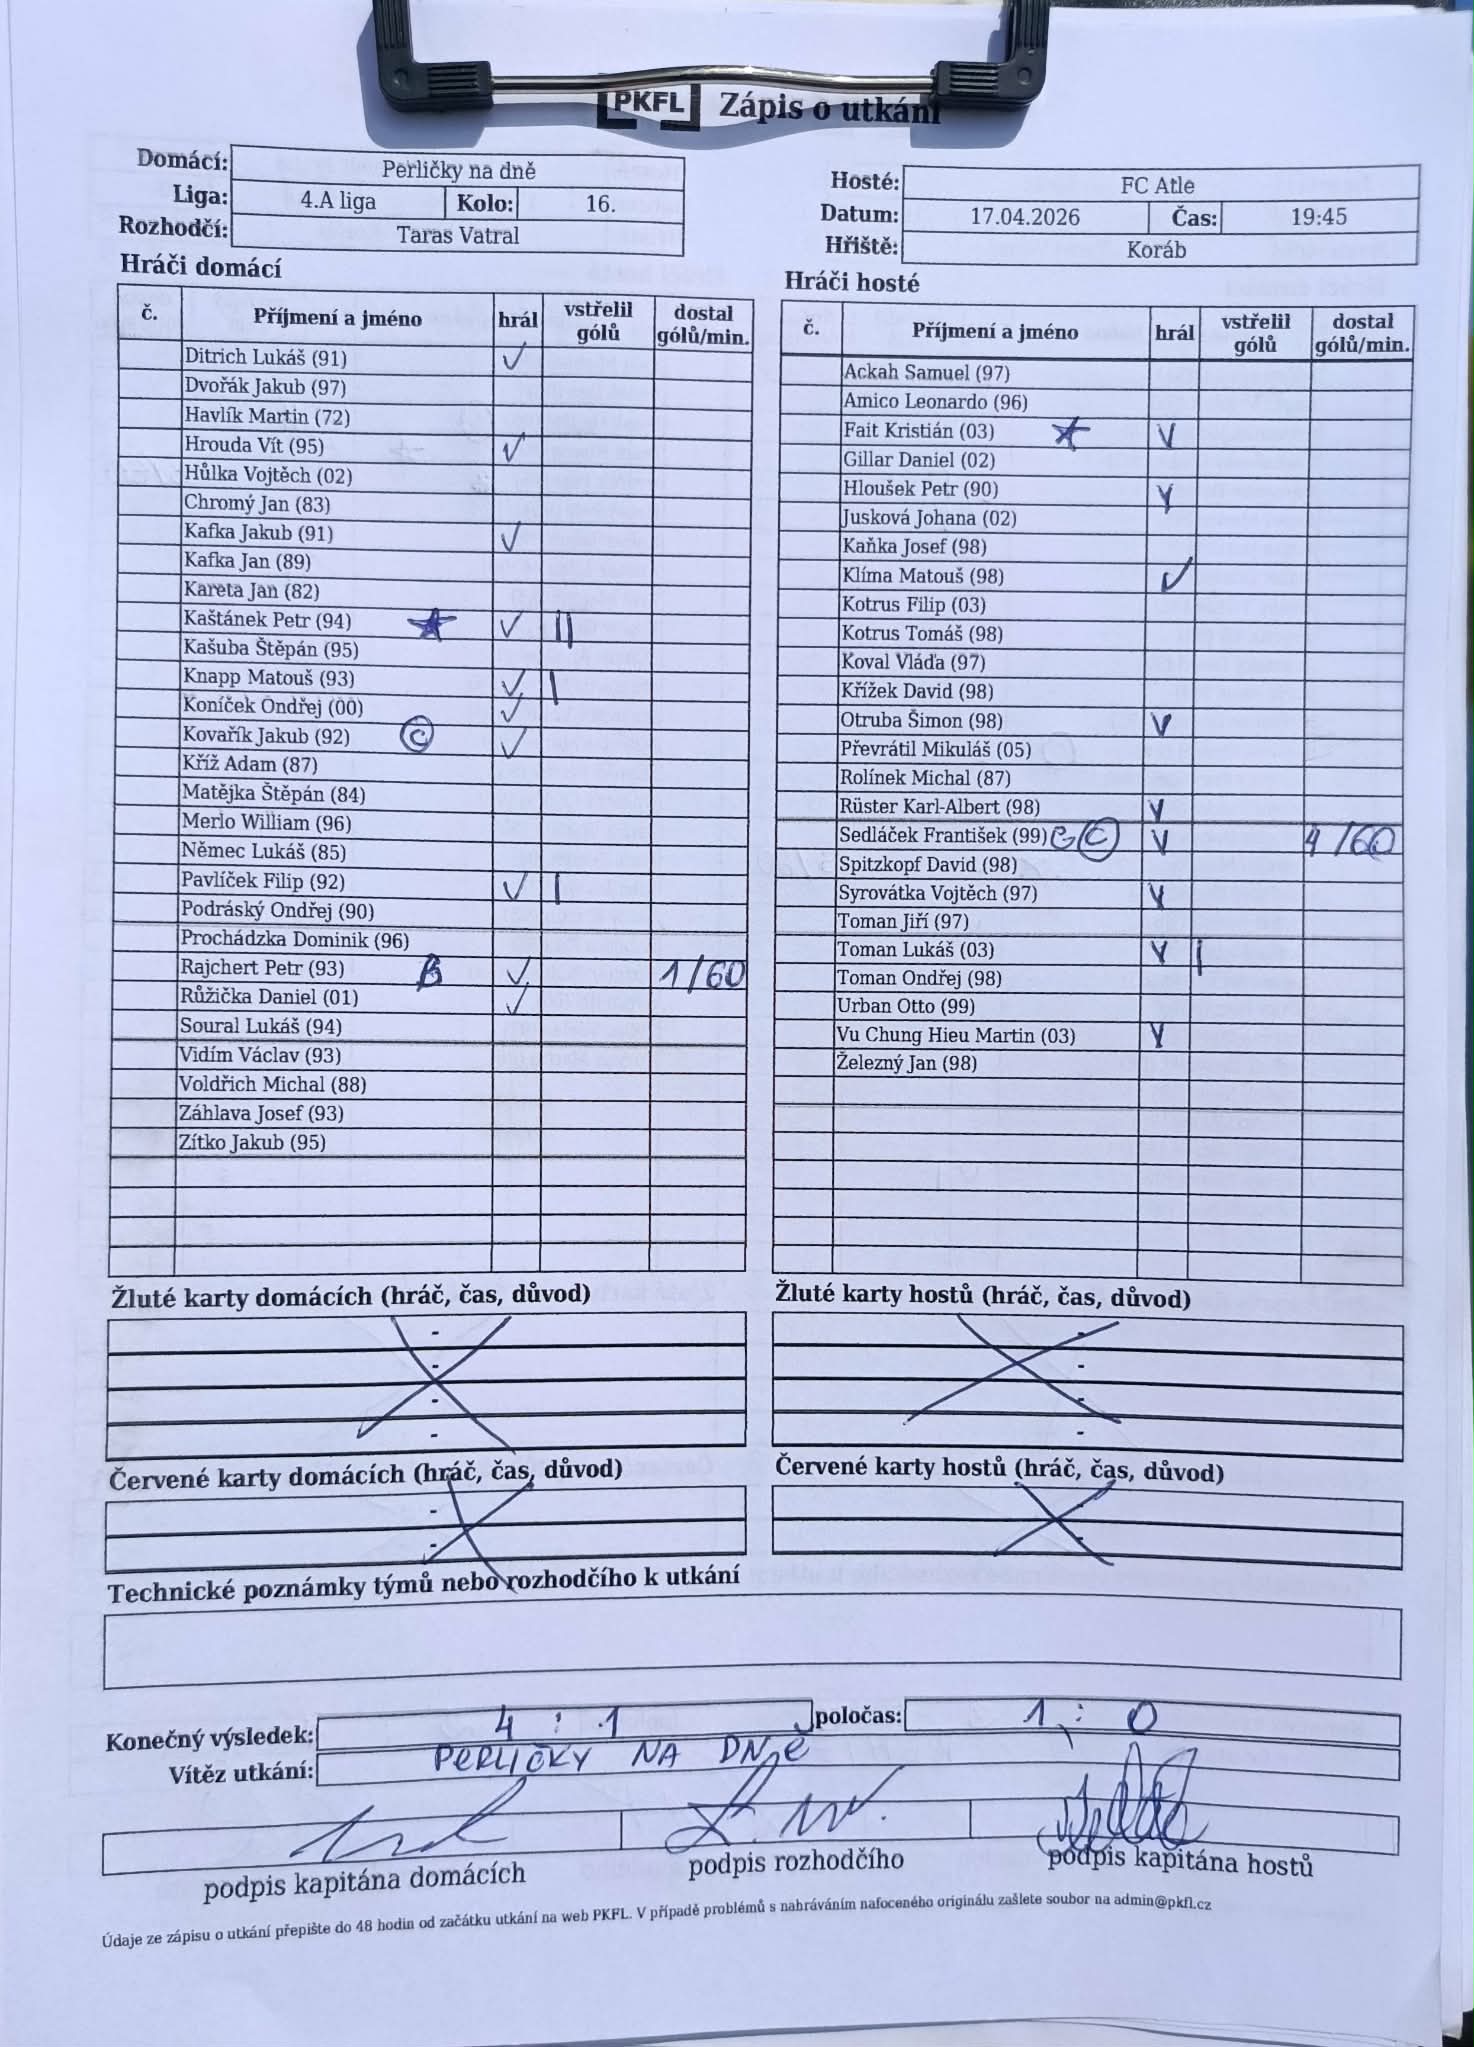 PKFL Zápis o utkání
Domácí: Perličky na dně
Liga: 4.A liga Kolo: 16.
Rozhodčí: Taras Vatral
Hosté: FC Atle
Datum: 17.04.2026 Čas: 19:45
Hřiště: Koráb
Hráči domácí
č. Příjmení a jméno hrál vstřelil gólů dostal gólů/min.
Ditrich Lukáš (91) ✓
Dvořák Jakub (97)
Havlík Martin (72)
Hrouda Vít (95) ✓
Hůlka Vojtěch (02)
Chromý Jan (83)
Kafka Jakub (91) ✓
Kafka Jan (89)
Kareta Jan (82)
Kaštánek Petr (94) ★ ✓ ||
Kašuba Štěpán (95)
Knapp Matouš (93) ✓ |
Koníček Ondřej (00) ✓
Kovařík Jakub (92) © ✓
Kříž Adam (87)
Matějka Štěpán (84)
Merlo William (96)
Němec Lukáš (85)
Pavlíček Filip (92) ✓ |
Podráský Ondřej (90)
Procházka Dominik (96)
Rajchert Petr (93) B ✓ 1/60
Růžička Daniel (01) ✓
Soural Lukáš (94)
Vidím Václav (93)
Voldřich Michal (88)
Záhlava Josef (93)
Zítko Jakub (95)
Hráči hosté
č. Příjmení a jméno hrál vstřelil gólů dostal gólů/min.
Ackah Samuel (97)
Amico Leonardo (96)
Fait Kristián (03) ★ ✓
Gillar Daniel (02)
Hloušek Petr (90) ✓
Jusková Johana (02)
Kaňka Josef (98)
Klíma Matouš (98) ✓
Kotrus Filip (03)
Kotrus Tomáš (98)
Koval Vláďa (97)
Křížek David (98)
Otruba Šimon (98) ✓
Převrátil Mikuláš (05)
Rolínek Michal (87)
Rüster Karl-Albert (98) ✓
Sedláček František (99) © ✓ 4/60
Spitzkopf David (98)
Syrovátka Vojtěch (97) ✓
Toman Jiří (97)
Toman Lukáš (03) ✓ |
Toman Ondřej (98)
Urban Otto (99)
Vu Chung Hieu Martin (03) ✓
Železný Jan (98)
Žluté karty domácích (hráč, čas, důvod)
-
-
-
-
Žluté karty hostů (hráč, čas, důvod)
-
-
-
-
Červené karty domácích (hráč, čas, důvod)
-
-
Červené karty hostů (hráč, čas, důvod)
-
-
Technické poznámky týmů nebo rozhodčího k utkání
Konečný výsledek: 4 : 1 poločas: 1 : 0
Vítěz utkání: PERLIČKY NA DNĚ
podpis kapitána domácích podpis rozhodčího podpis kapitána hostů
Údaje ze zápisu o utkání přepište do 48 hodin od začátku utkání na web PKFL. V případě problémů s nahráváním nafoceného originálu zašlete soubor na admin@pkfl.cz